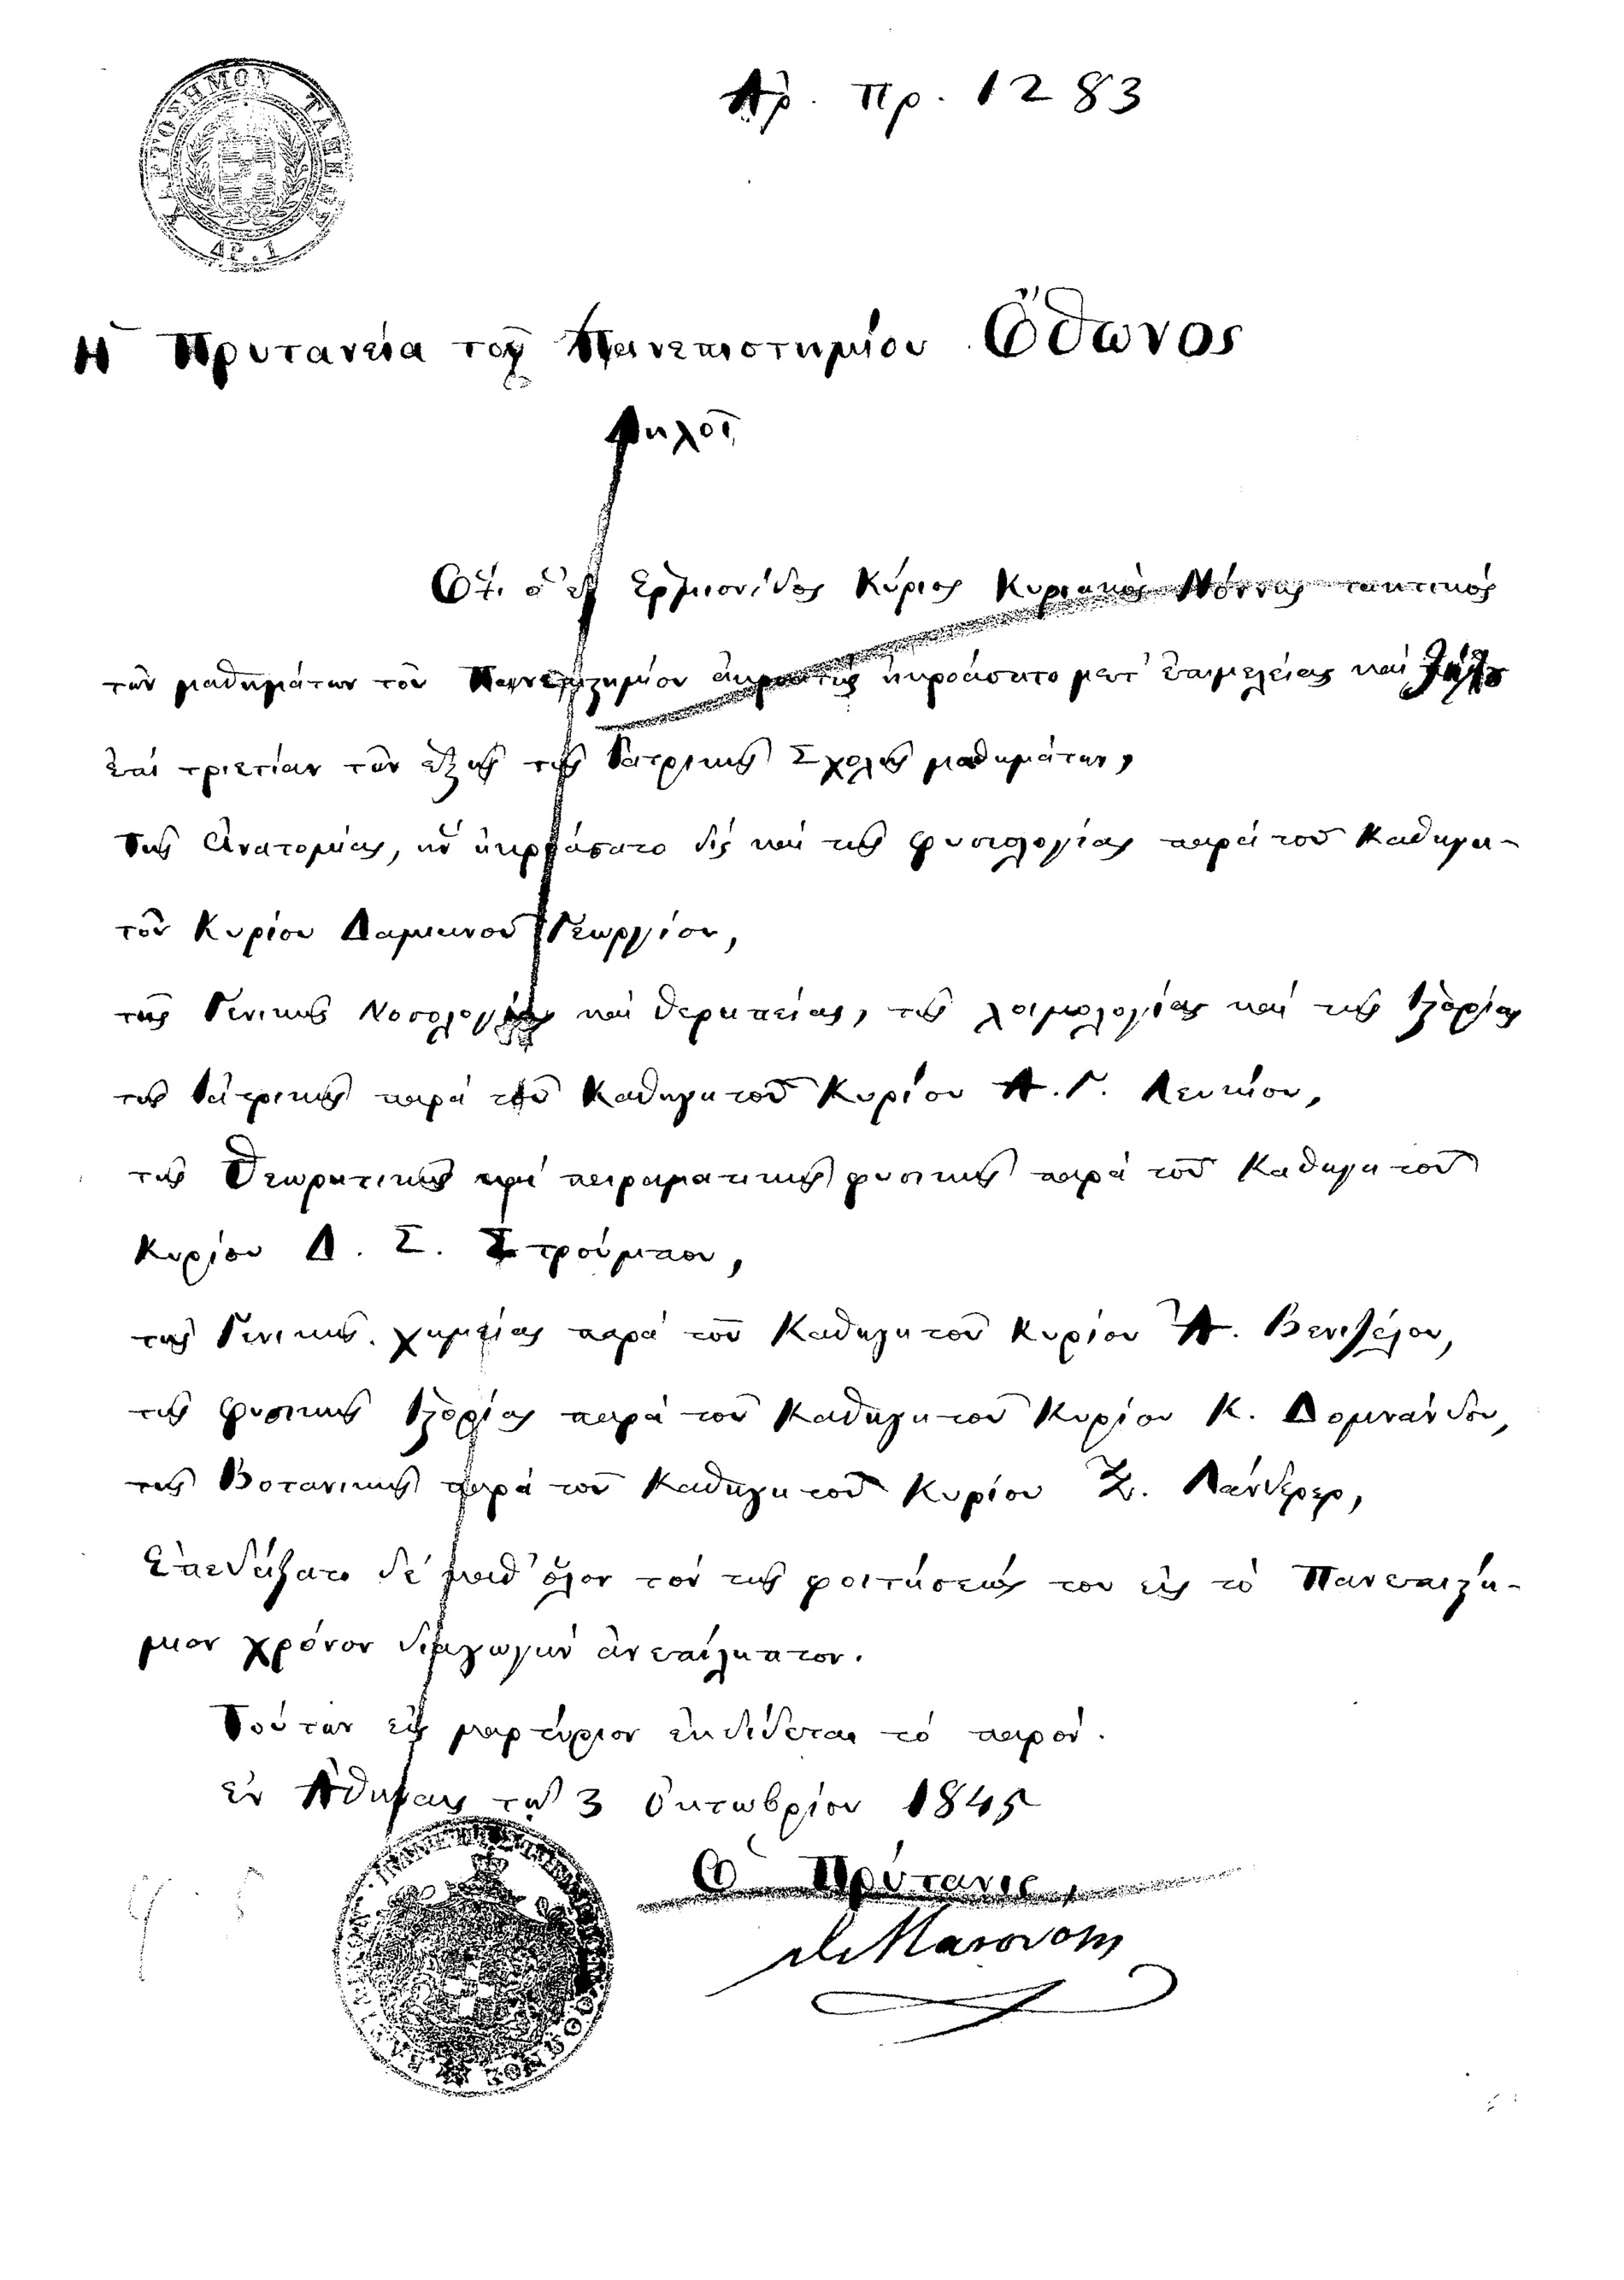 ΧΑΡΤΟΣΗΜΟΝ ΤΑΞΕΩΣ
ΔΡ. 1
Ἀρ. Πρ. 1283
Ἡ Πρυτανεία τοῦ Πανεπιστημίου Ὄθωνος
Δηλοῖ
Ὅτι ὁ ἐξ Ἑρμιονίδος Κύριος Κυριακὸς Νόννης τακτικὸς
τῶν μαθημάτων τοῦ Πανεπιστημίου ἀκροατὴς ἠκροάσατο μετ' ἐπιμελείας καὶ ζήλου
ἐπὶ τριετίαν τῶν ἑξῆς τῆς Ἰατρικῆς Σχολῆς μαθημάτων,
Τῆς Ἀνατομίας, ἣν ἠκροάσατο δὶς καὶ τῆς φυσιολογίας παρὰ τοῦ Καθηγη-
τοῦ Κυρίου Δαμιανοῦ Γεωργίου,
τῆς Γενικῆς Νοσολογίας καὶ θεραπείας, τῆς λοιμολογίας καὶ τῆς Ἱστορίας
τῆς Ἰατρικῆς παρὰ τοῦ Καθηγητοῦ Κυρίου Α. Γ. Λευκίου,
τῆς Θεωρητικῆς καὶ πειραματικῆς φυσικῆς παρὰ τοῦ Καθηγητοῦ
Κυρίου Δ. Σ. Στρούμπου,
τῆς Γενικῆς χημείας παρὰ τοῦ Καθηγητοῦ Κυρίου Ἀ. Βενιζέλου,
τῆς φυσικῆς Ἱστορίας παρὰ τοῦ Καθηγητοῦ Κυρίου Κ. Δομνάνδου,
τῆς Βοτανικῆς παρὰ τοῦ Καθηγητοῦ Κυρίου Ξ. Λάνδερερ,
Ἐπεδείξατο δὲ καθ' ὅλον τὸν τῆς φοιτήσεώς του εἰς τὸ Πανεπιστή-
μιον χρόνον διαγωγὴν ἀνεπίληπτον.
Τούτων εἰς μαρτύριον ἐκδίδεται τὸ παρόν.
ἐν Ἀθήναις τῇ 3 Ὀκτωβρίου 1845
Ὁ Πρύτανις,